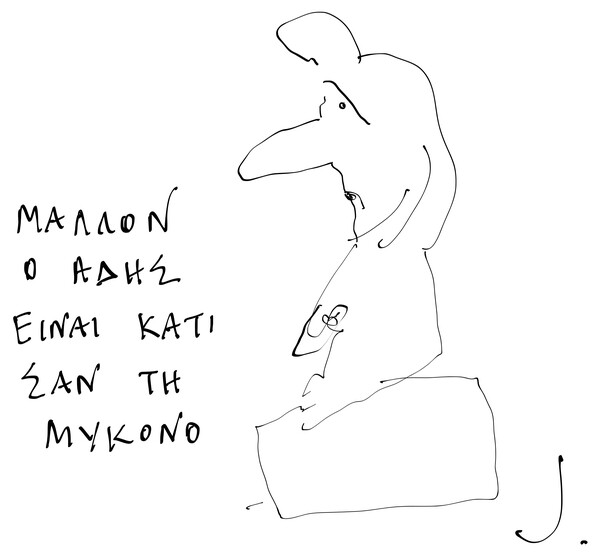 ΜΑΛΛΟΝ
Ο ΑΔΗΣ
ΕΙΝΑΙ ΚΑΤΙ
ΣΑΝ ΤΗ
ΜΥΚΟΝΟ
J.